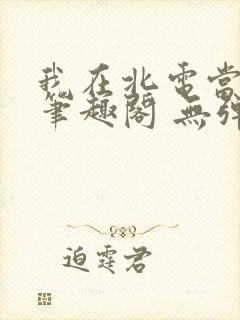 我在北電當
筆趣閣 無彈
迫霆君